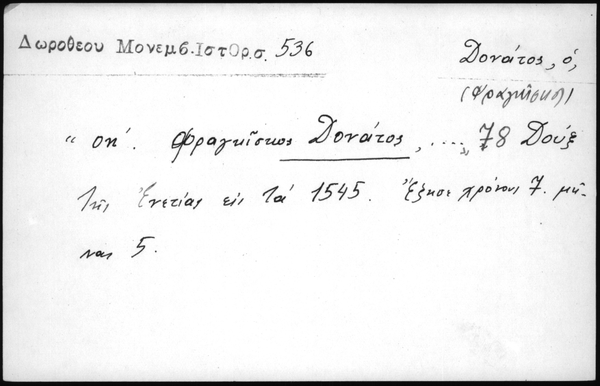 Δωροθεου Μονεμβ. Ιστορ. σ. 536
Δονάτος, ὁ,
(Φραγκῖσκος)
" οη΄. Φραγκῖσκος Δονάτος, ...., 78 Δούξ
τῆς Ἑνετίας εἰς τά 1545. Ἔζησε χρόνους 7. μῆ-
νας 5.